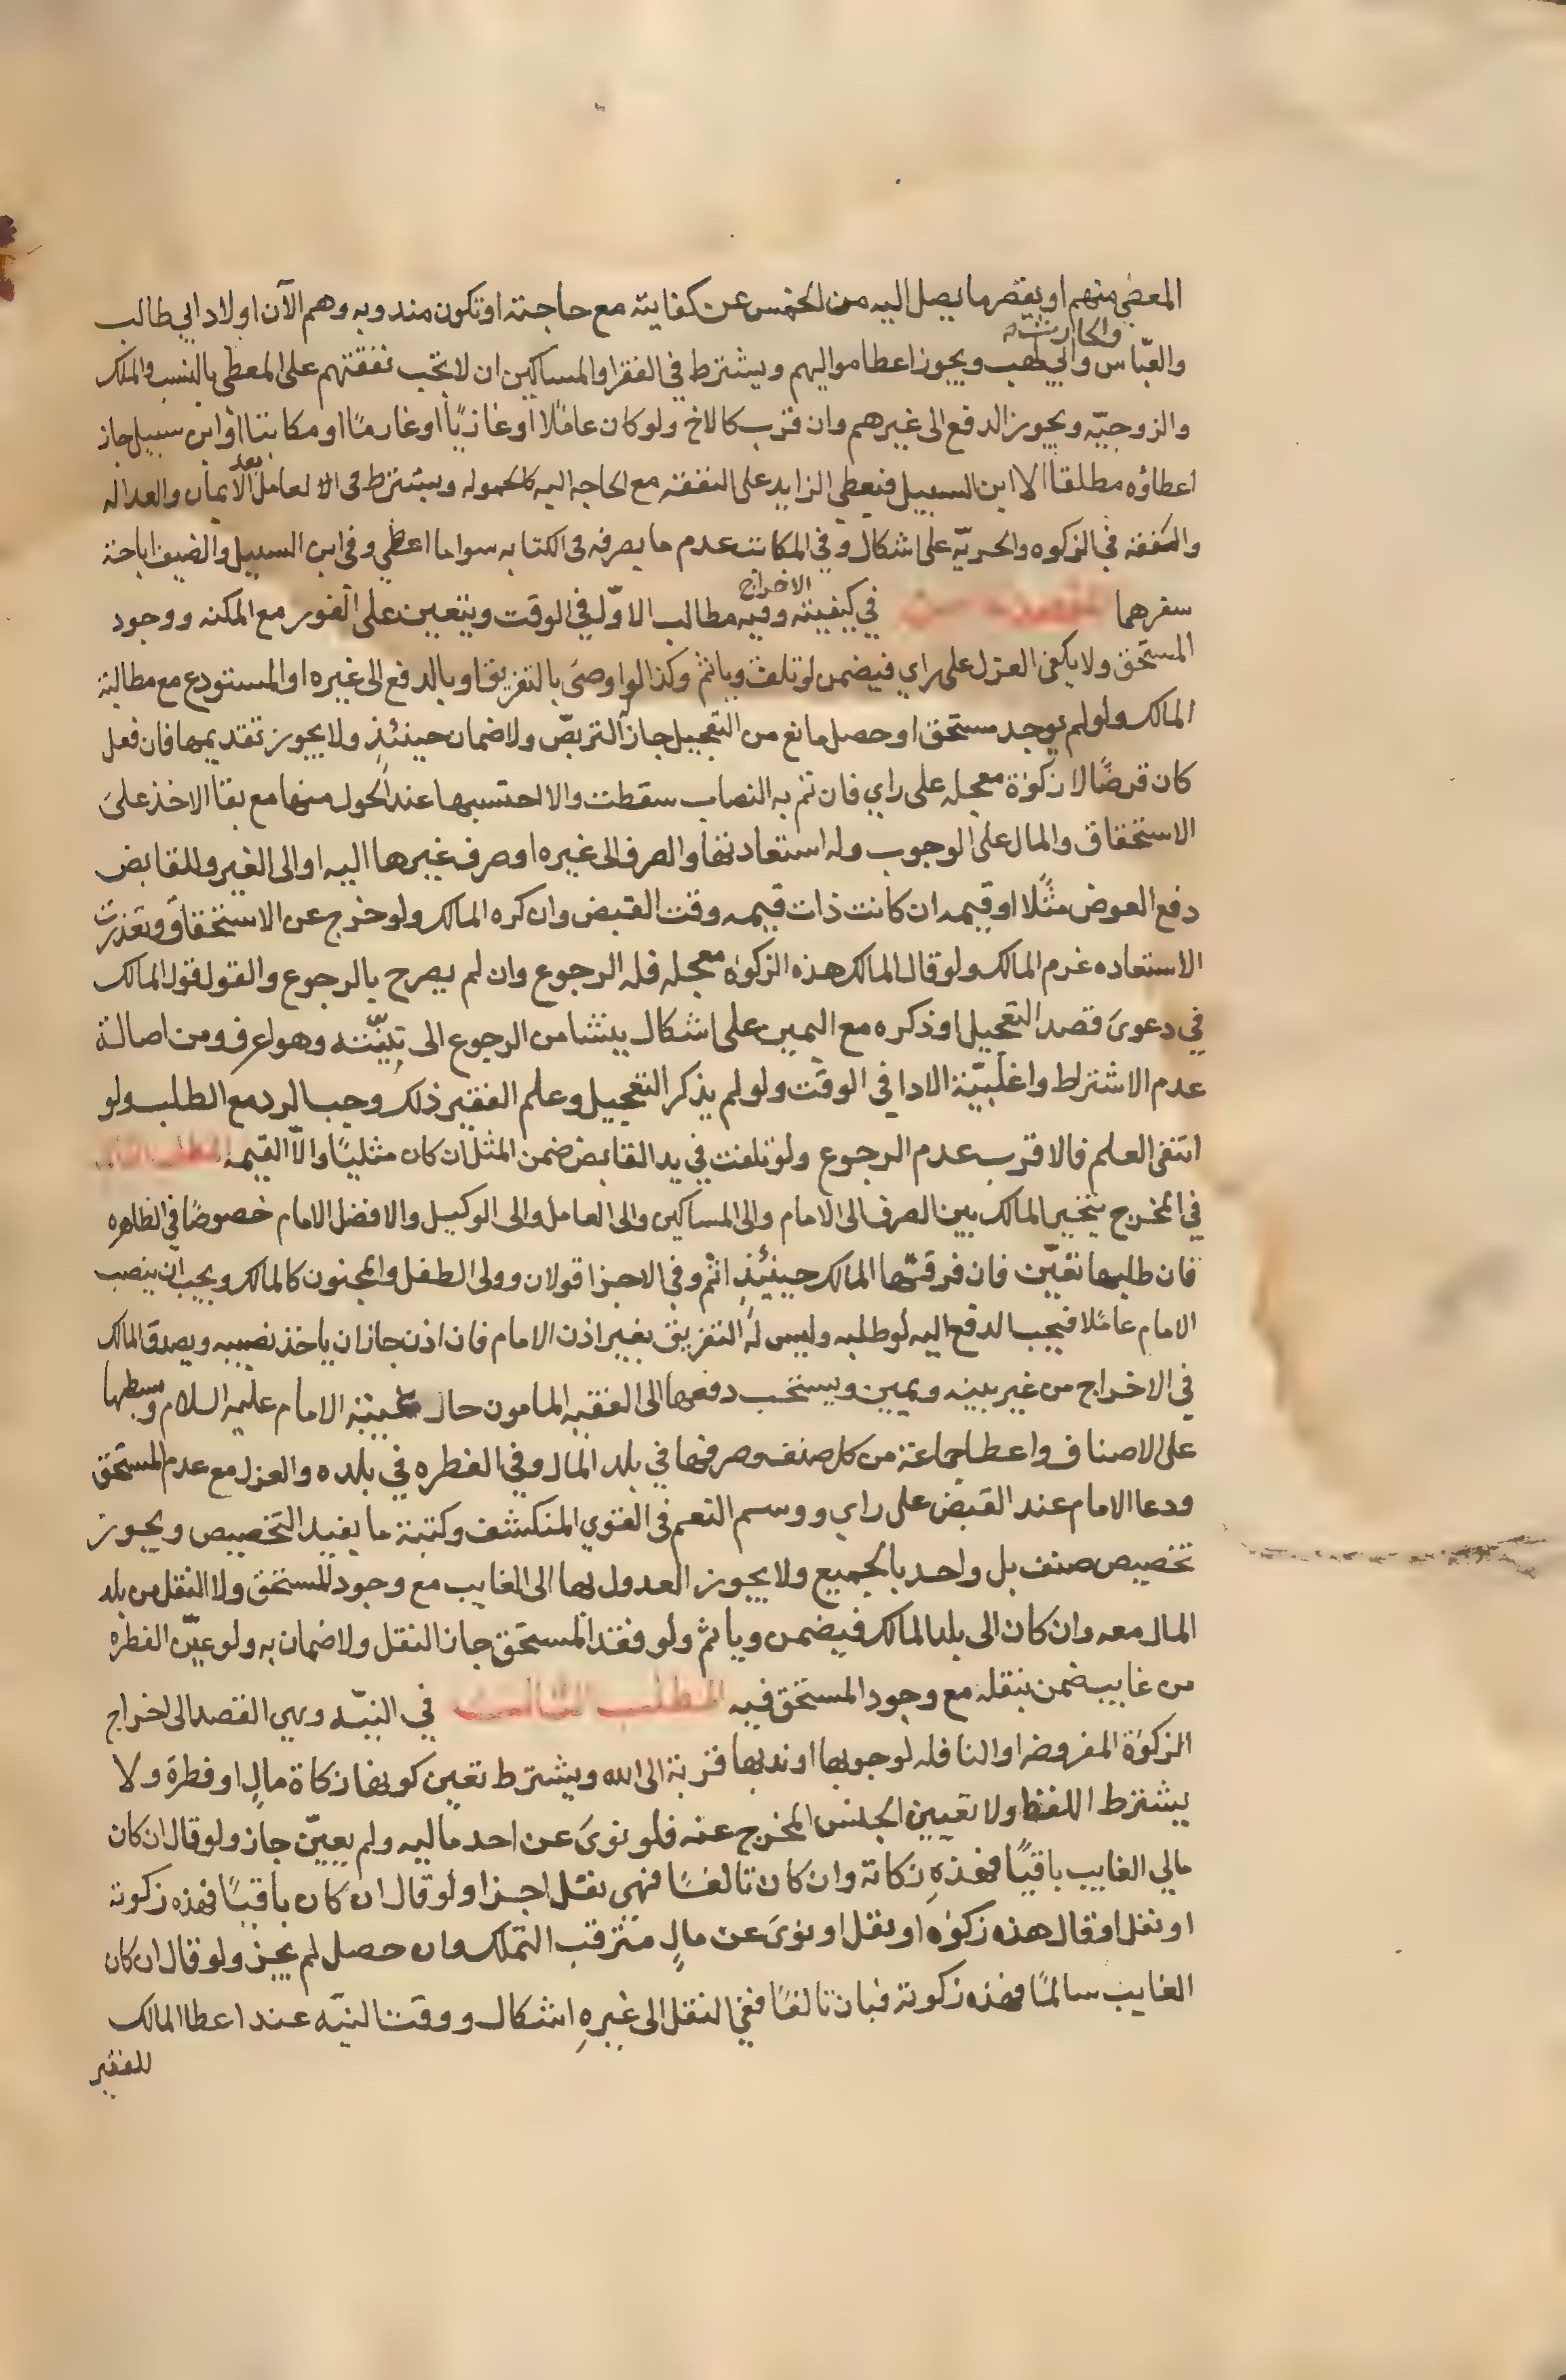 المعطي منهم او يقصر ما يصل اليه من الخمس عن كفايته مع حاجته او تكون مندوبه وهم الآن اولاد ابي طالب
والحارث
والعبّاس وابي لهب ويجوز اعطا مواليهم ويشترط في الفقرا والمساكين ان لا تجب نفقتهم على المعطي بالنسب والملك
والزوجيّه ويجوز الدفع الى غيرهم وان قرب كالاخ ولو كان عاملًا او غازيًا او غارمًا او مكاتبًا او ابن سبيل جاز
اعطاؤه مطلقا الا ابن السبيل فيعطي الزايد على النفقه مع الحاجه اليه كالحموله ويشترط في العامل بعد الايمان والعداله
والفقه في الزكوه والحريّه على اشكال وفي المكاتب عدم ما يصرفه في الكتابه سوا ما اعطي وفي ابن السبيل والضيف اباحة
سفرهما في كيفيته الاخراج وفيه مطالب الاوّل في الوقت ويتعين على الفور مع المكنه ووجود
المستحق ولا يكفي العزل على راي فيضمن لو تلف وياثم وكذا لو اوصىَ بالتفريق او بالدفع الى غيره او المستودع مع مطالبة
المالك ولو لم يوجد مستحق او حصل مانع من التعجيل جاز التربصّ ولا ضمان حينئذٍ ولا يجوز تقديمها فان فعل
كان قرضًا لا زكوٰة معجله على راي فان تم به النصاب سقطت والا احتسبها عند الحول منها مع بقا الاخذ علىَ
الاستحقاق والمال على الوجوب وله استعادتها والصرف الى غيره او صرف غيرها اليه او الى الغير وللقابض
دفع العوض مثًلا او قيمه ان كانت ذات قيمه وقت القبض وان كره المالك ولو خرج عن الاستحقاق وتعذرت
الاستعاده غرم المالك ولو قال المالك هذه الزكوٰه معجله فله الرجوع وان لم يصرح بالرجوع والقول قول المالك
في دعوىَ قصد التعجيل او ذكره مع اليمين على اشكال ينشا من الرجوع الى نيّته وهو اعرف ومن اصالة
عدم الاشتراط واغلبيّة الادا في الوقت ولو لم يذكر التعجيل وعلم الفقير ذلك وجب الرد مع الطلب ولو
انتفى العلم فالاقرب عدم الرجوع ولو تلفت في يد القابض ضمن المثل ان كان مثليًا والّا القيمه المطلب الثاني
في المخرج يتخير المالك بين الصرف الى الامام والى المساكين والى العامل والى الوكيل والافضل الامام خصوصًا في الظاهره
فان طلبها تعيّن فان فرقتها المالك حينئذٍ اثم وفي الاجزا قولان وولى الطفل والمجنون كالمالك ويجب ان ينصب
الامام عاملًا فيجب الدفع اليه لو طلبه وليس له التفريق بغير اذن الامام فان اذن جاز ان ياخذ نصيبه ويصدق المالك
في الاخراج من غير بينه ويمين ويستحب دفعها الى الفقيه المامون حال غيبة الامام عليه السلام وبسطها
على الاصناف واعطا جماعة من كل صنف وصرفها في بلد المال وفي الفطره في بلده والعزل مع عدم المستحق
ودعا الامام عند القبض على راي ووسم النعم في القوي المنكشف وكتبة ما يفيد التخصيص ويجوز
تخصيص صنف بل واحد بالجميع ولا يجوز العدول بها الى الغايب مع وجود المستحق ولا النقل من بلد
المال معه وان كان الى بلد المالك فيضمن وياثم ولو فقد المستحق جاز النقل ولا ضمان به ولو عيّن الفطره
من غايب ضمن بنقله مع وجود المستحق فيه المطلب الثالث في النيّه وهي القصد الى اخراج
الزكوٰة المفروضه او النافله لوجوبها او ندبها قربة الى الله ويشترط تعين كونها زكاة مالٍ او فطرة ولا
يشترط اللفظ ولا تعيين الجنس المخرج عنه فلو نوىَ عن احد ماليه ولم يعيّن جاز ولو قال ان كان
مالي الغايب باقيًا فهذهِ زكاته وان كان تالفًا فهي نفل اجزا ولو قال ان كان باقيًا فهذه زكوته
او نفل او قال هذه زكوٰه او نفل او نوىَ عن مالٍ مترقب التملك وان حصل لم يجز ولو قال ان كان
الغايب سالمًا فهذه زكوته فبان تالفًا ففي النقل الى غيرهِ اشكال ووقت النيّه عند اعطا المالك
للفقير